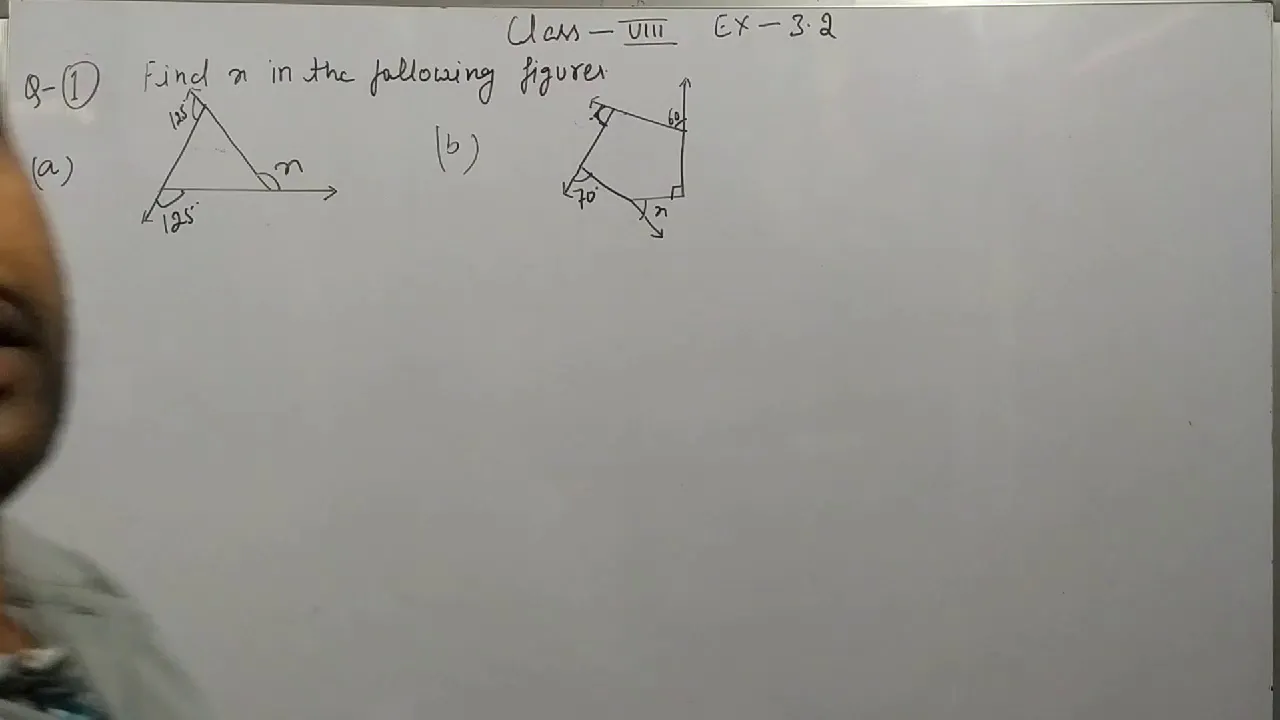 Class - VIII EX - 3.2
Q-(1) Find x in the following figures
(a) 125° x 125°
(b) 60° 70° x